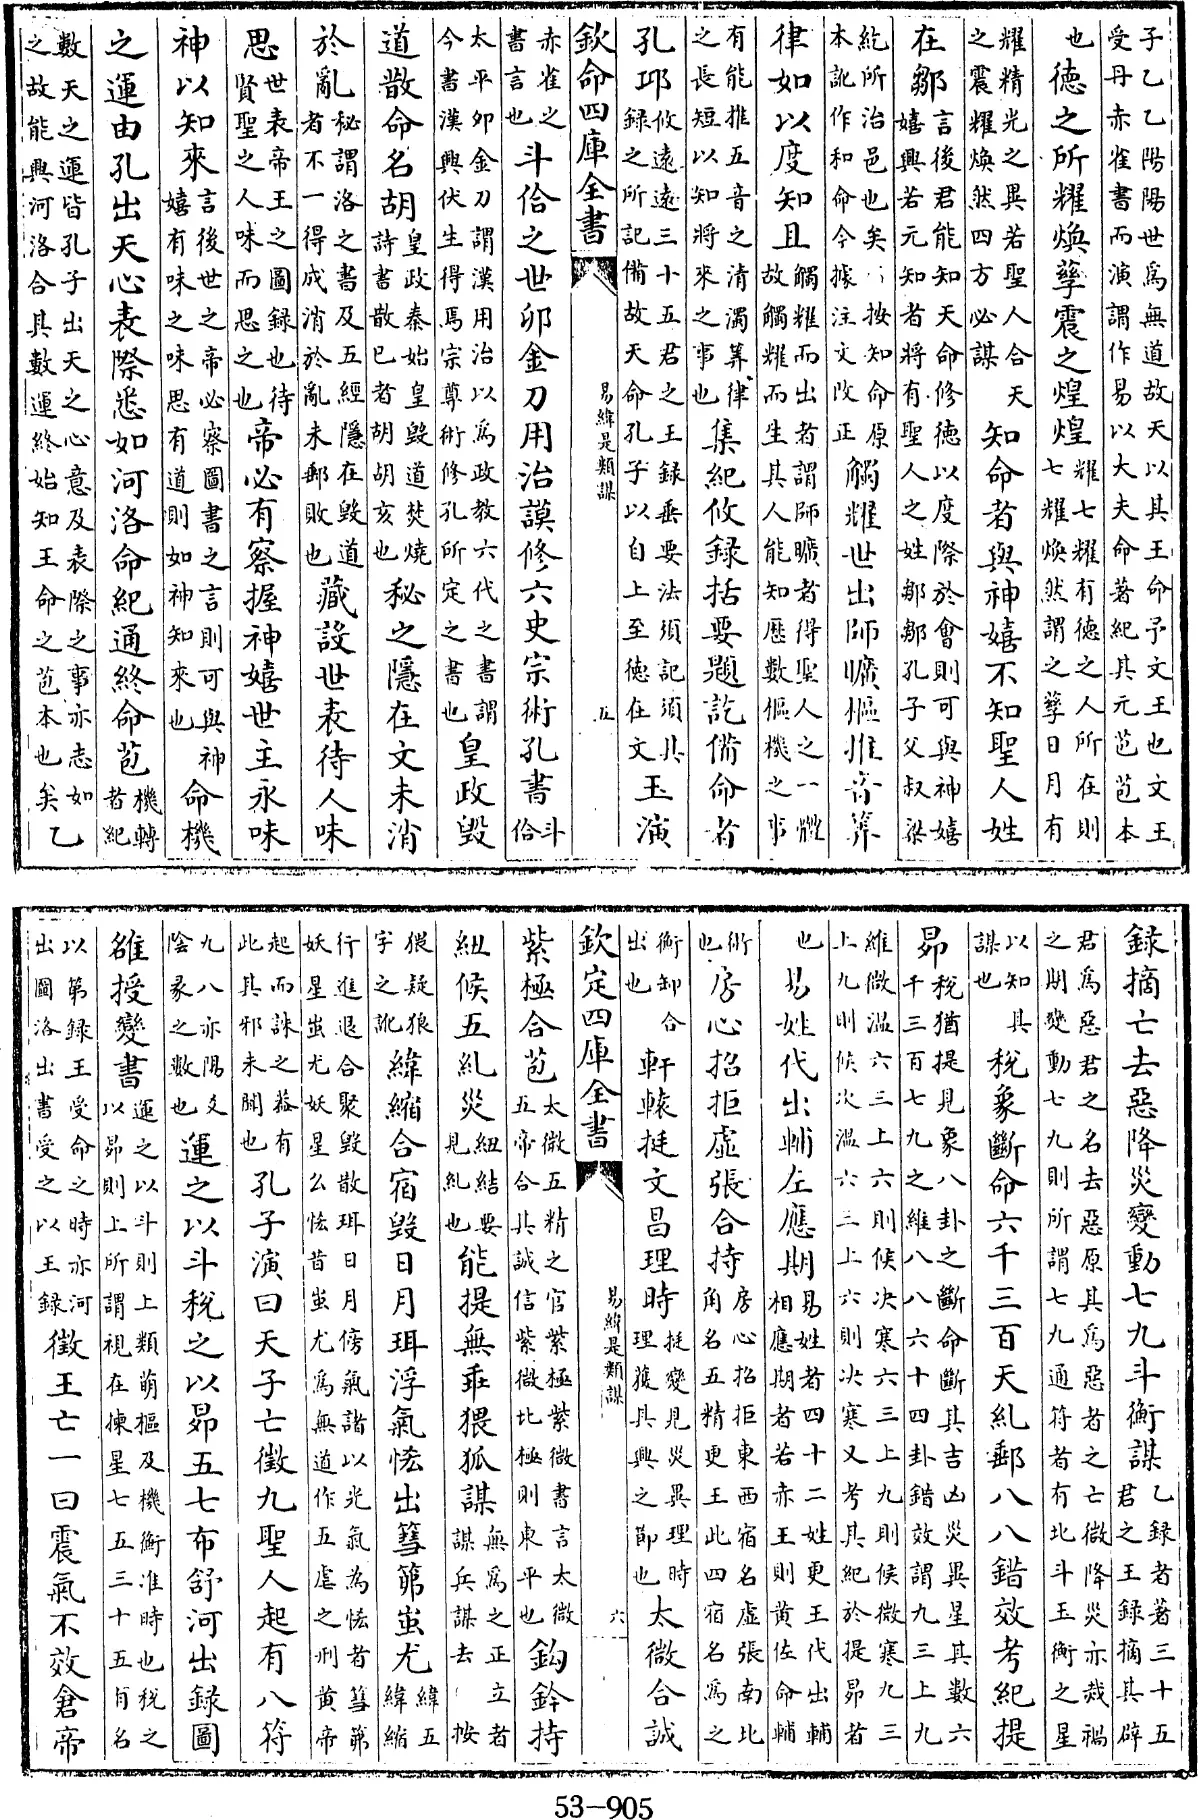 子乙乙陽陽世爲無道故天以其王命予文王也文王
受丹赤雀書而演謂作易以大夫命著紀其元苞苞本
也德之所耀煥孳震之煌煌耀七耀有德之人所在則七耀煥然謂之孳日月有
耀精光之異若聖人合天之震耀煥然四方必謀知命者與神嬉不知聖人姓
在鄒言後君能知天命修德以度際於會則可與神嬉嬉興若元知者將有聖人之姓鄒鄒孔子父叔梁
紇所治邑也矣按知命原本訛作和命今據注文改正觸耀世出師曠樞推音筭
律如以度知且觸耀而出者謂師曠者得聖人之一微故觸耀而生其人能知歷數樞機之事
有能推五音之清濁筭律之長短以知將來之事也集紀攸錄括要題訖備命者
孔邛攸遠遠三十五君之王錄垂要法須記須其錄之所記備故天命孔子以自上至德在文玉演
欽命四庫全書
易緯是類謀
五
赤雀之書言也斗佁之世卯金刀用治謨修六史宗術孔書斗佁
太平卯金刀謂漢用治以爲政教六代之書謂今書漢興伏生得焉宗尊術修孔所定之書也皇政毀
道散命名胡皇政秦始皇毀道焚燒詩書散已者胡胡亥也秘之隱在文未消
於亂秘謂洛之書及五經隱在毀道者不一得成消於亂未鄣敗也藏設世表待人味
思世表帝王之圖錄也待賢聖之人味而思之也帝必有察握神嬉世主永味
神以知來言後世之帝必察圖書之言則可與神嬉有味之味思有道則如神知來也命機
之運由孔出天心表際悉如河洛命紀通終命苞機轉者紀
數天之運皆孔子出天之心意及表際之事亦志如之故能興河洛合其數運終始知王命之苞本也矣乙
錄摘亡去惡降災變動七九斗衡謀乙錄者著三十五君之王錄摘其辟
君爲惡君之名去惡原其爲惡者之亡徵降災亦烖禍之期變動七九則所謂七九通符者有北斗玉衡之星
以知其謀也稅象斷命六千三百天糺鄣八八錯效考紀提
昴稅猶提見象八卦之斷命斷其吉凶災異星其數六千三百七九之維八八六十四卦錯效謂九三上九
維微溫六三上六則候決寒六三上九則候微寒九三上九則候次溫六三上六則決寒又考其紀於提昴者
也易姓代出輔左應期易姓者四十二姓更王代出輔相應期者若赤王則黃佐命輔
術也房心招拒虛張合持房心招拒東西宿名虛張南北角名五精更王此四宿名爲之
衡卸合出也軒轅挺文昌理時挺變見災異理時理獲其興之節也太微合誠
欽定四庫全書
易緯是類謀
六
紫極合苞太微五精之官紫極紫微書言太微五帝合其誠信紫微比極則東平也鈎鈐持
紐候五糺災紐結要見糺也能提無乖猥狐謀無爲之正立者謀兵謀去按
猥疑狼字之訛緯縮合宿毀日月珥浮氣恠出篲第蚩尤緯五緯縮
行進退合聚毀散珥日月傍氣謟以光氣為恠者篲第妖星蚩尤妖星么恠昔蚩尤爲無道作五虐之刑黃帝
起而誅之葢有此其邪未聞也孔子演曰天子亡徵九聖人起有八符
九八亦陽爻陰彖之數也運之以斗稅之以昴五七布舒河出錄圖
雒授變書運之以斗則上類萌樞及機衡准時也稅之以昴則上所謂視在揀星七五三十五有名
以第錄王受命之時亦河出圖洛出書受之以王錄徵王亡一曰震氣不效倉帝
53-905